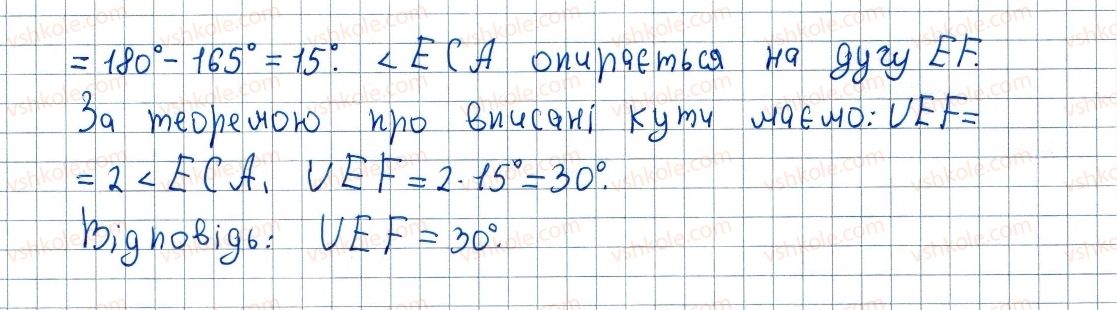 = 180° - 165° = 15°. < ECA опирається на дугу EF.
За теоремою про вписані кути маємо: ∪EF =
= 2 < ECA, ∪EF = 2 · 15° = 30°.
Відповідь: ∪EF = 30°.